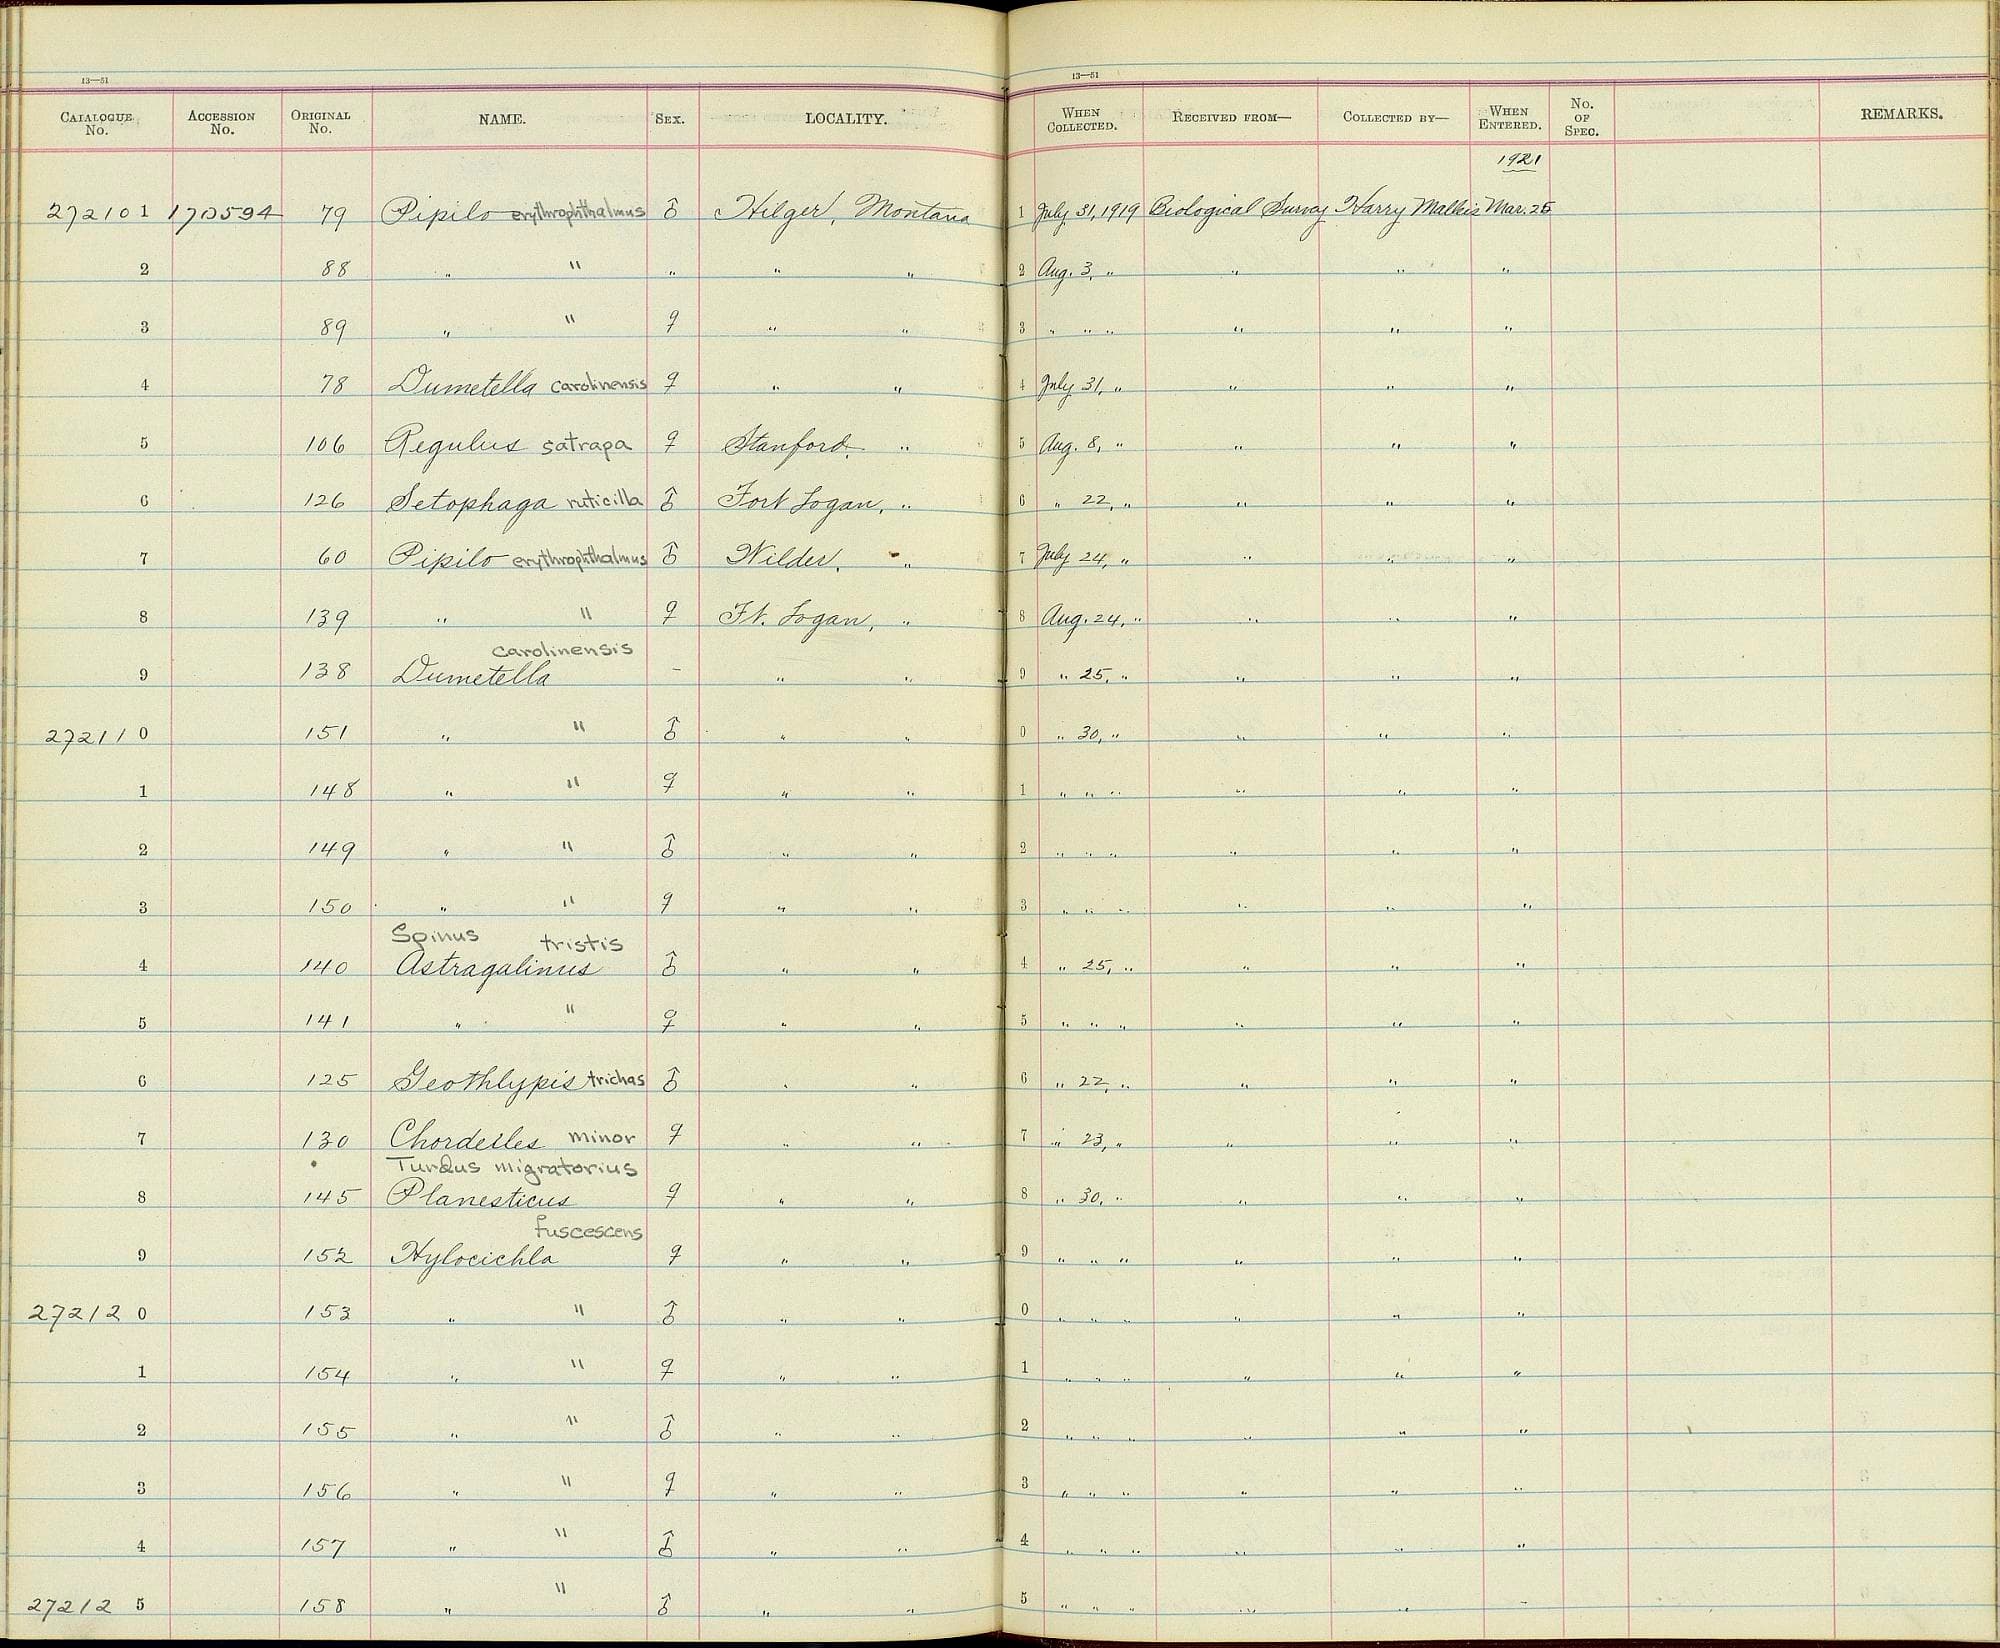 13—51
CATALOGUE No. ACCESSION No. ORIGINAL No. NAME. SEX. LOCALITY.
272101 170594 79 Pipilo erythrophthalmus ♂ Hilger, Montana
2 88 " " " " "
3 89 " " ♀ " "
4 78 Dumetella carolinensis ♀ " "
5 106 Regulus satrapa ♀ Stanford, "
6 126 Setophaga ruticilla ♂ Fort Logan, "
7 60 Pipilo erythrophthalmus ♂ Wilder, "
8 139 " " ♀ Ft. Logan, "
carolinensis
9 138 Dumetella – " "
272110 151 " " ♂ " "
1 148 " " ♀ " "
2 149 " " ♂ " "
3 150 " " ♀ " "
Spinus tristis
4 140 Astragalinus ♂ " "
5 141 " " ♀ " "
6 125 Geothlypis trichas ♂ " "
7 130 Chordeiles minor ♀ " "
Turdus migratorius
8 145 Planesticus ♀ " "
fuscescens
9 152 Hylocichla ♀ " "
272120 153 " " ♂ " "
1 154 " " ♀ " "
2 155 " " ♂ " "
3 156 " " ♀ " "
4 157 " " ♂ " "
272125 158 " " ♂ " "
13—51
WHEN COLLECTED. RECEIVED FROM— COLLECTED BY— WHEN ENTERED. No. OF SPEC. REMARKS.
1921
1 July 31, 1919 Biological Survey Harry Malleis Mar. 25
2 Aug. 3, " " " "
3 " " " " " "
4 July 31, " " " "
5 Aug. 8, " " " "
6 " 22, " " " "
7 July 24, " " " "
8 Aug. 24, " " " "
9 " 25, " " " "
0 " 30, " " " "
1 " " " " " "
2 " " " " " "
3 " " " " " "
4 " 25, " " " "
5 " " " " " "
6 " 22, " " " "
7 " 23, " " " "
8 " 30, " " " "
9 " " " " " "
0 " " " " " "
1 " " " " " "
2 " " " " " "
3 " " " " " "
4 " " " " " "
5 " " " " " "